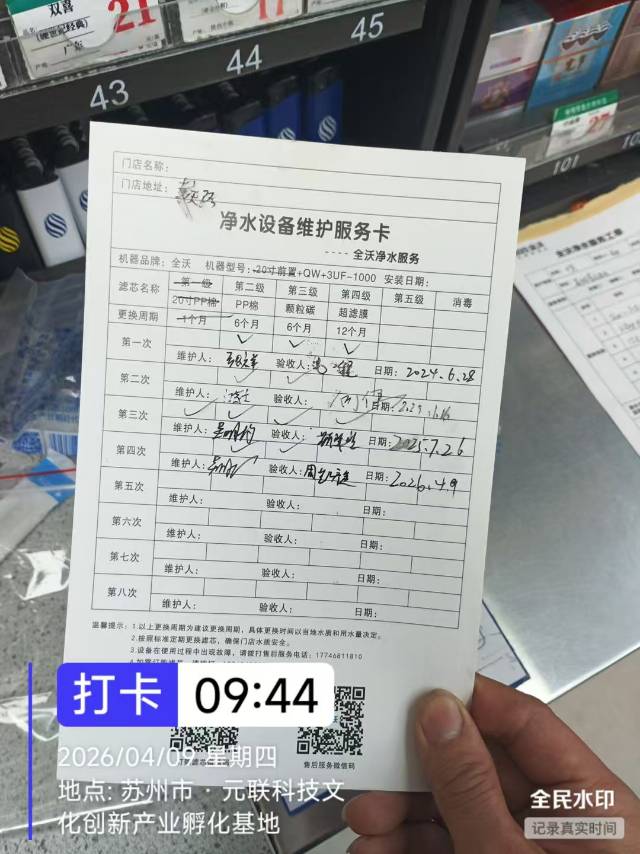 双喜
(硬世纪经典)
广东
21
17
43
44
45
101
27
门店名称:
门店地址:
净水设备维护服务卡
----全沃净水服务
机器品牌: 全沃 机器型号: 20寸前置+QW+3UF-1000 安装日期:
滤芯名称 第一级 第二级 第三级 第四级 第五级 消毒
20寸PP棉 PP棉 颗粒碳 超滤膜
更换周期 1个月 6个月 6个月 12个月
第一次
维护人: 验收人: 日期: 2024.6.28
第二次
维护人: 验收人: 日期:
第三次
维护人: 验收人: 日期: 2025.7.26
第四次
维护人: 验收人: 日期: 2026.4.9
第五次
维护人: 验收人: 日期:
第六次
维护人: 验收人: 日期:
第七次
维护人: 验收人: 日期:
第八次
维护人: 验收人: 日期:
温馨提示: 1.以上更换周期为建议更换周期,具体更换时间以当地水质和用水量决定。
2.按照标准定期更换滤芯,确保门店水质安全。
3.设备在使用过程中出现故障,请拨打售后服务电话: 17746811810
售后服务微信码
打卡 09:44
2026/04/09 星期四
地点: 苏州市 · 元联科技文
化创新产业孵化基地
全民水印
记录真实时间